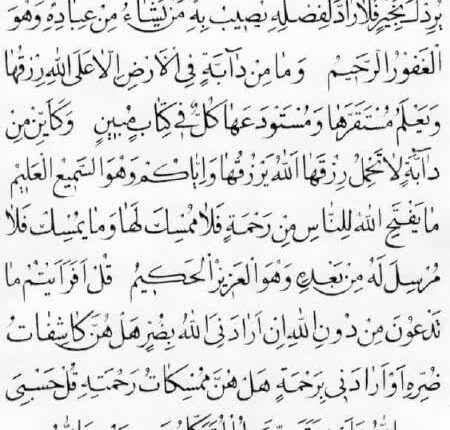 يُرِدْكَ بِخَيْرٍ فَلَا رَادَّ لِفَضْلِهِ يُصِيبُ بِهِ مَنْ يَشَاءُ مِنْ عِبَادِهِ وَهُوَ
الْغَفُورُ الرَّحِيمُ وَمَا مِنْ دَآبَّةٍ فِي الْاَرْضِ اِلَّا عَلَى اللّٰهِ رِزْقُهَا
وَيَعْلَمُ مُسْتَقَرَّهَا وَمُسْتَوْدَعَهَا كُلٌّ فِي كِتَابٍ مُبِينٍ وَكَاَيِّنْ مِنْ
دَآبَّةٍ لَا تَحْمِلُ رِزْقَهَا اَللّٰهُ يَرْزُقُهَا وَاِيَّاكُمْ وَهُوَ السَّمِيعُ الْعَلِيمُ
مَا يَفْتَحِ اللّٰهُ لِلنَّاسِ مِنْ رَحْمَةٍ فَلَا مُمْسِكَ لَهَا وَمَا يُمْسِكْ فَلَا
مُرْسِلَ لَهُ مِنْ بَعْدِهِ وَهُوَ الْعَزِيزُ الْحَكِيمُ قُلْ اَفَرَاَيْتُمْ مَا
تَدْعُونَ مِنْ دُونِ اللّٰهِ اِنْ اَرَادَنِيَ اللّٰهُ بِضُرٍّ هَلْ هُنَّ كَاشِفَاتُ
ضُرِّهِ اَوْ اَرَادَنِي بِرَحْمَةٍ هَلْ هُنَّ مُمْسِكَاتُ رَحْمَتِهِ قُلْ حَسْبِيَ